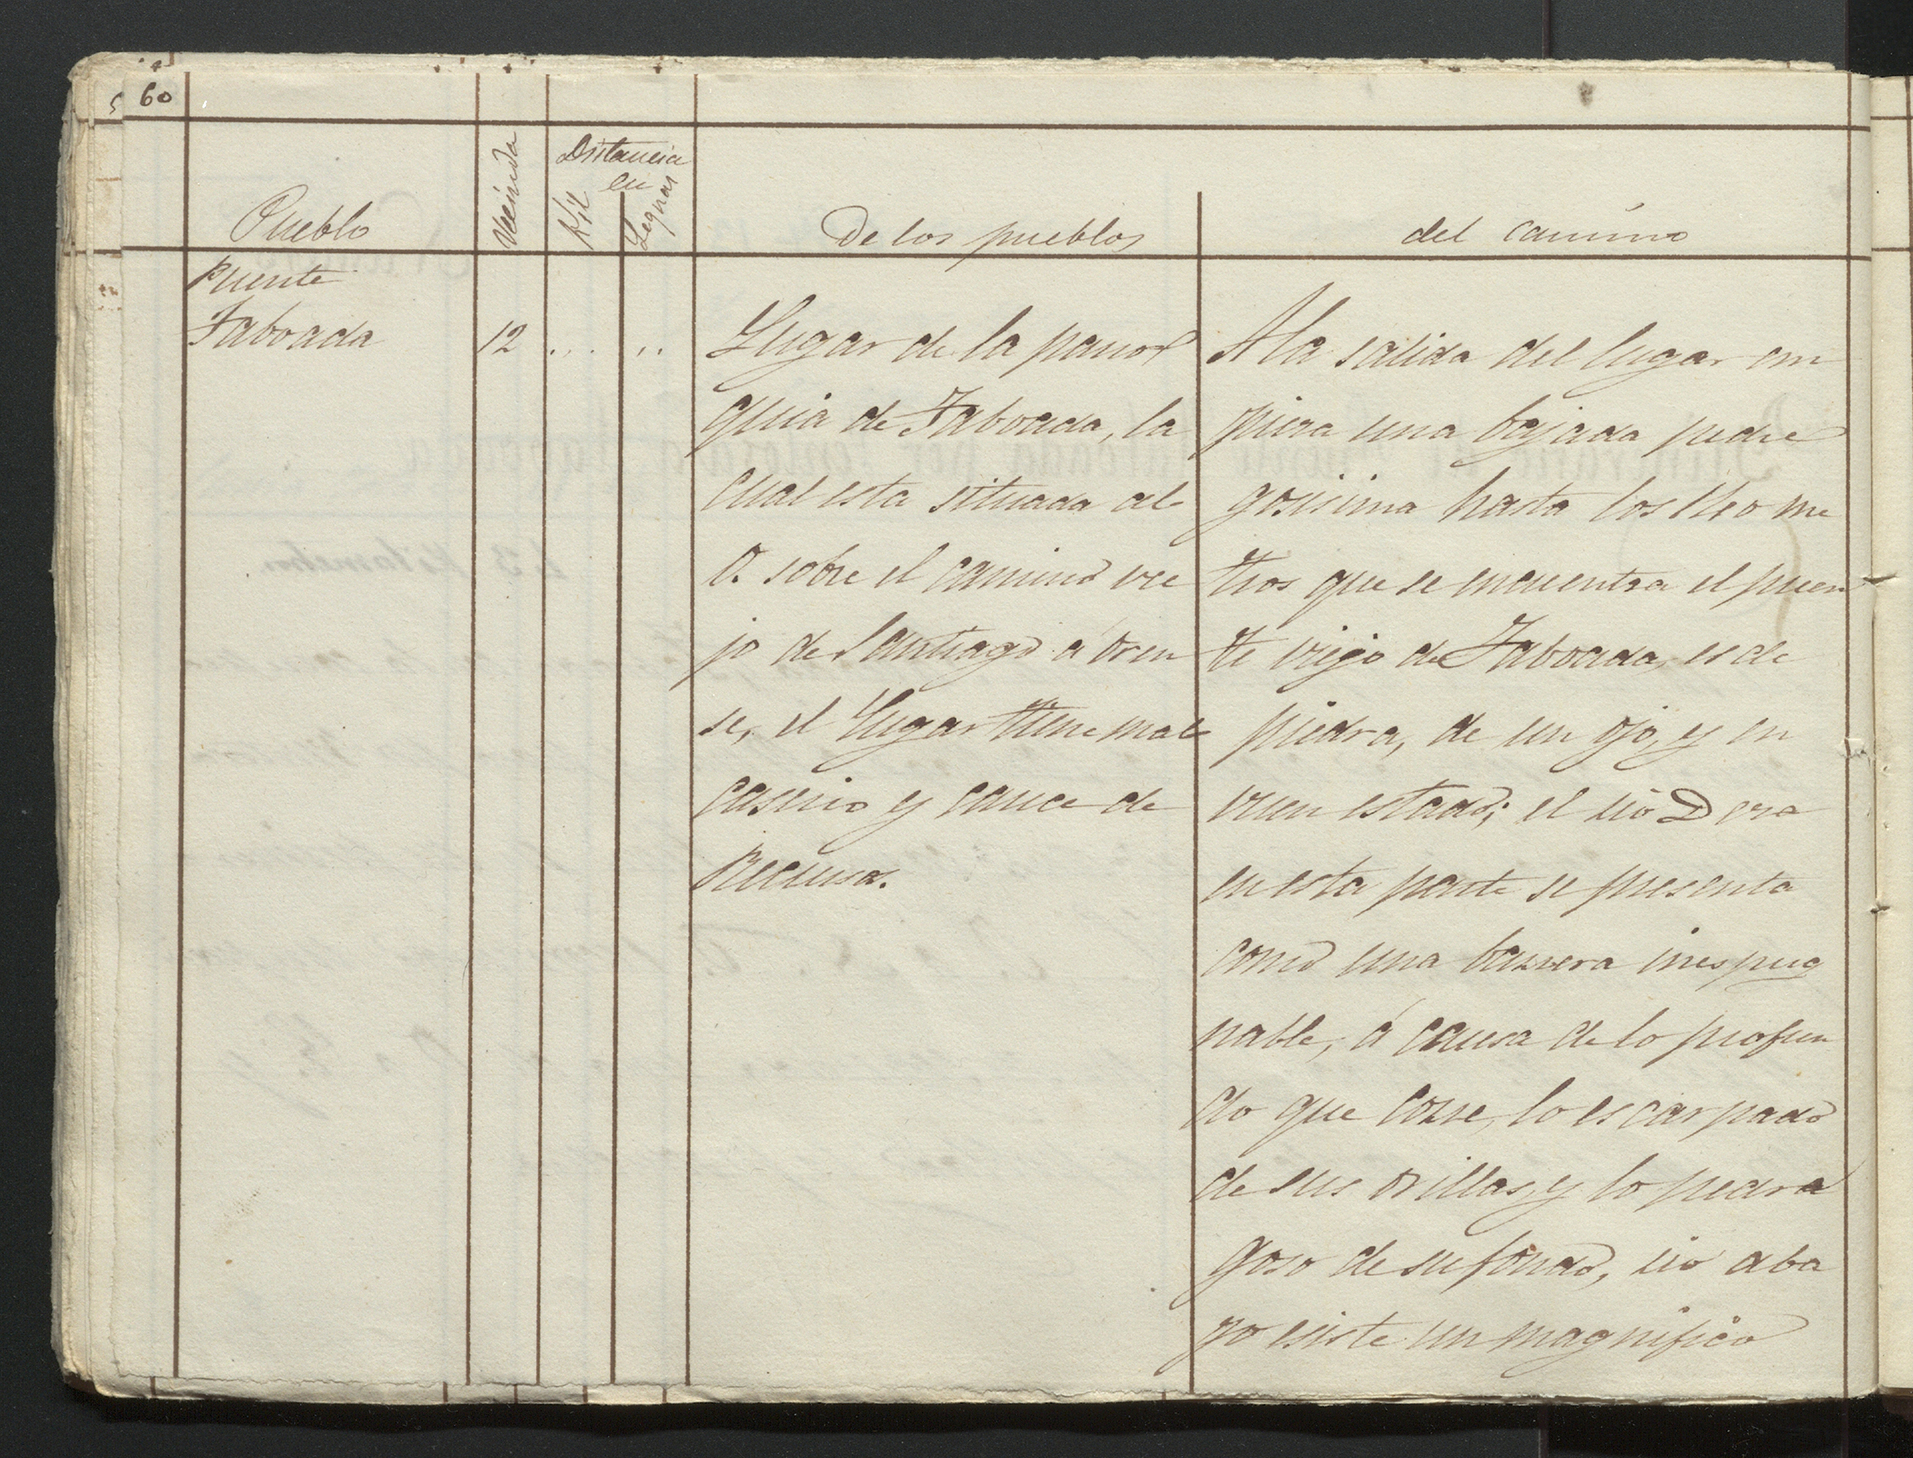 60
Pueblo
Vecinda
Distancia
en
Kil
Leguas
De los pueblos
del camino
Puente
Taboada
12
Lugar de la parro
quia de Taboada, la
cual esta situada al
O. sobre el camino vie
jo de Santiago á Oren
se, el Lugar tiene mal
caserio y carece de
Recursos.
A la salida del lugar em
pieza una bajada pedre
gosisima hasta los 140 me
tros que se encuentra el puen
te viejo de Taboada, es de
piedra, de un ojo, y en
buen estado; el rio Deza
en esta parte se presenta
como una barrera inespug
nable, á causa de lo profun
do que corre, lo escarpado
de sus orillas, y lo pedre
goso de su fondo, rio aba
jo esiste un magnifico